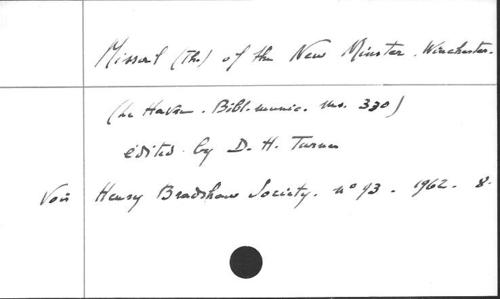 Missal (The) of the New Minster. Winchester.
(Le Havre. Bibl. munic. ms. 330)
edited by D. H. Turner
Voir Henry Bradshaw Society. n° 93. 1962. 8.